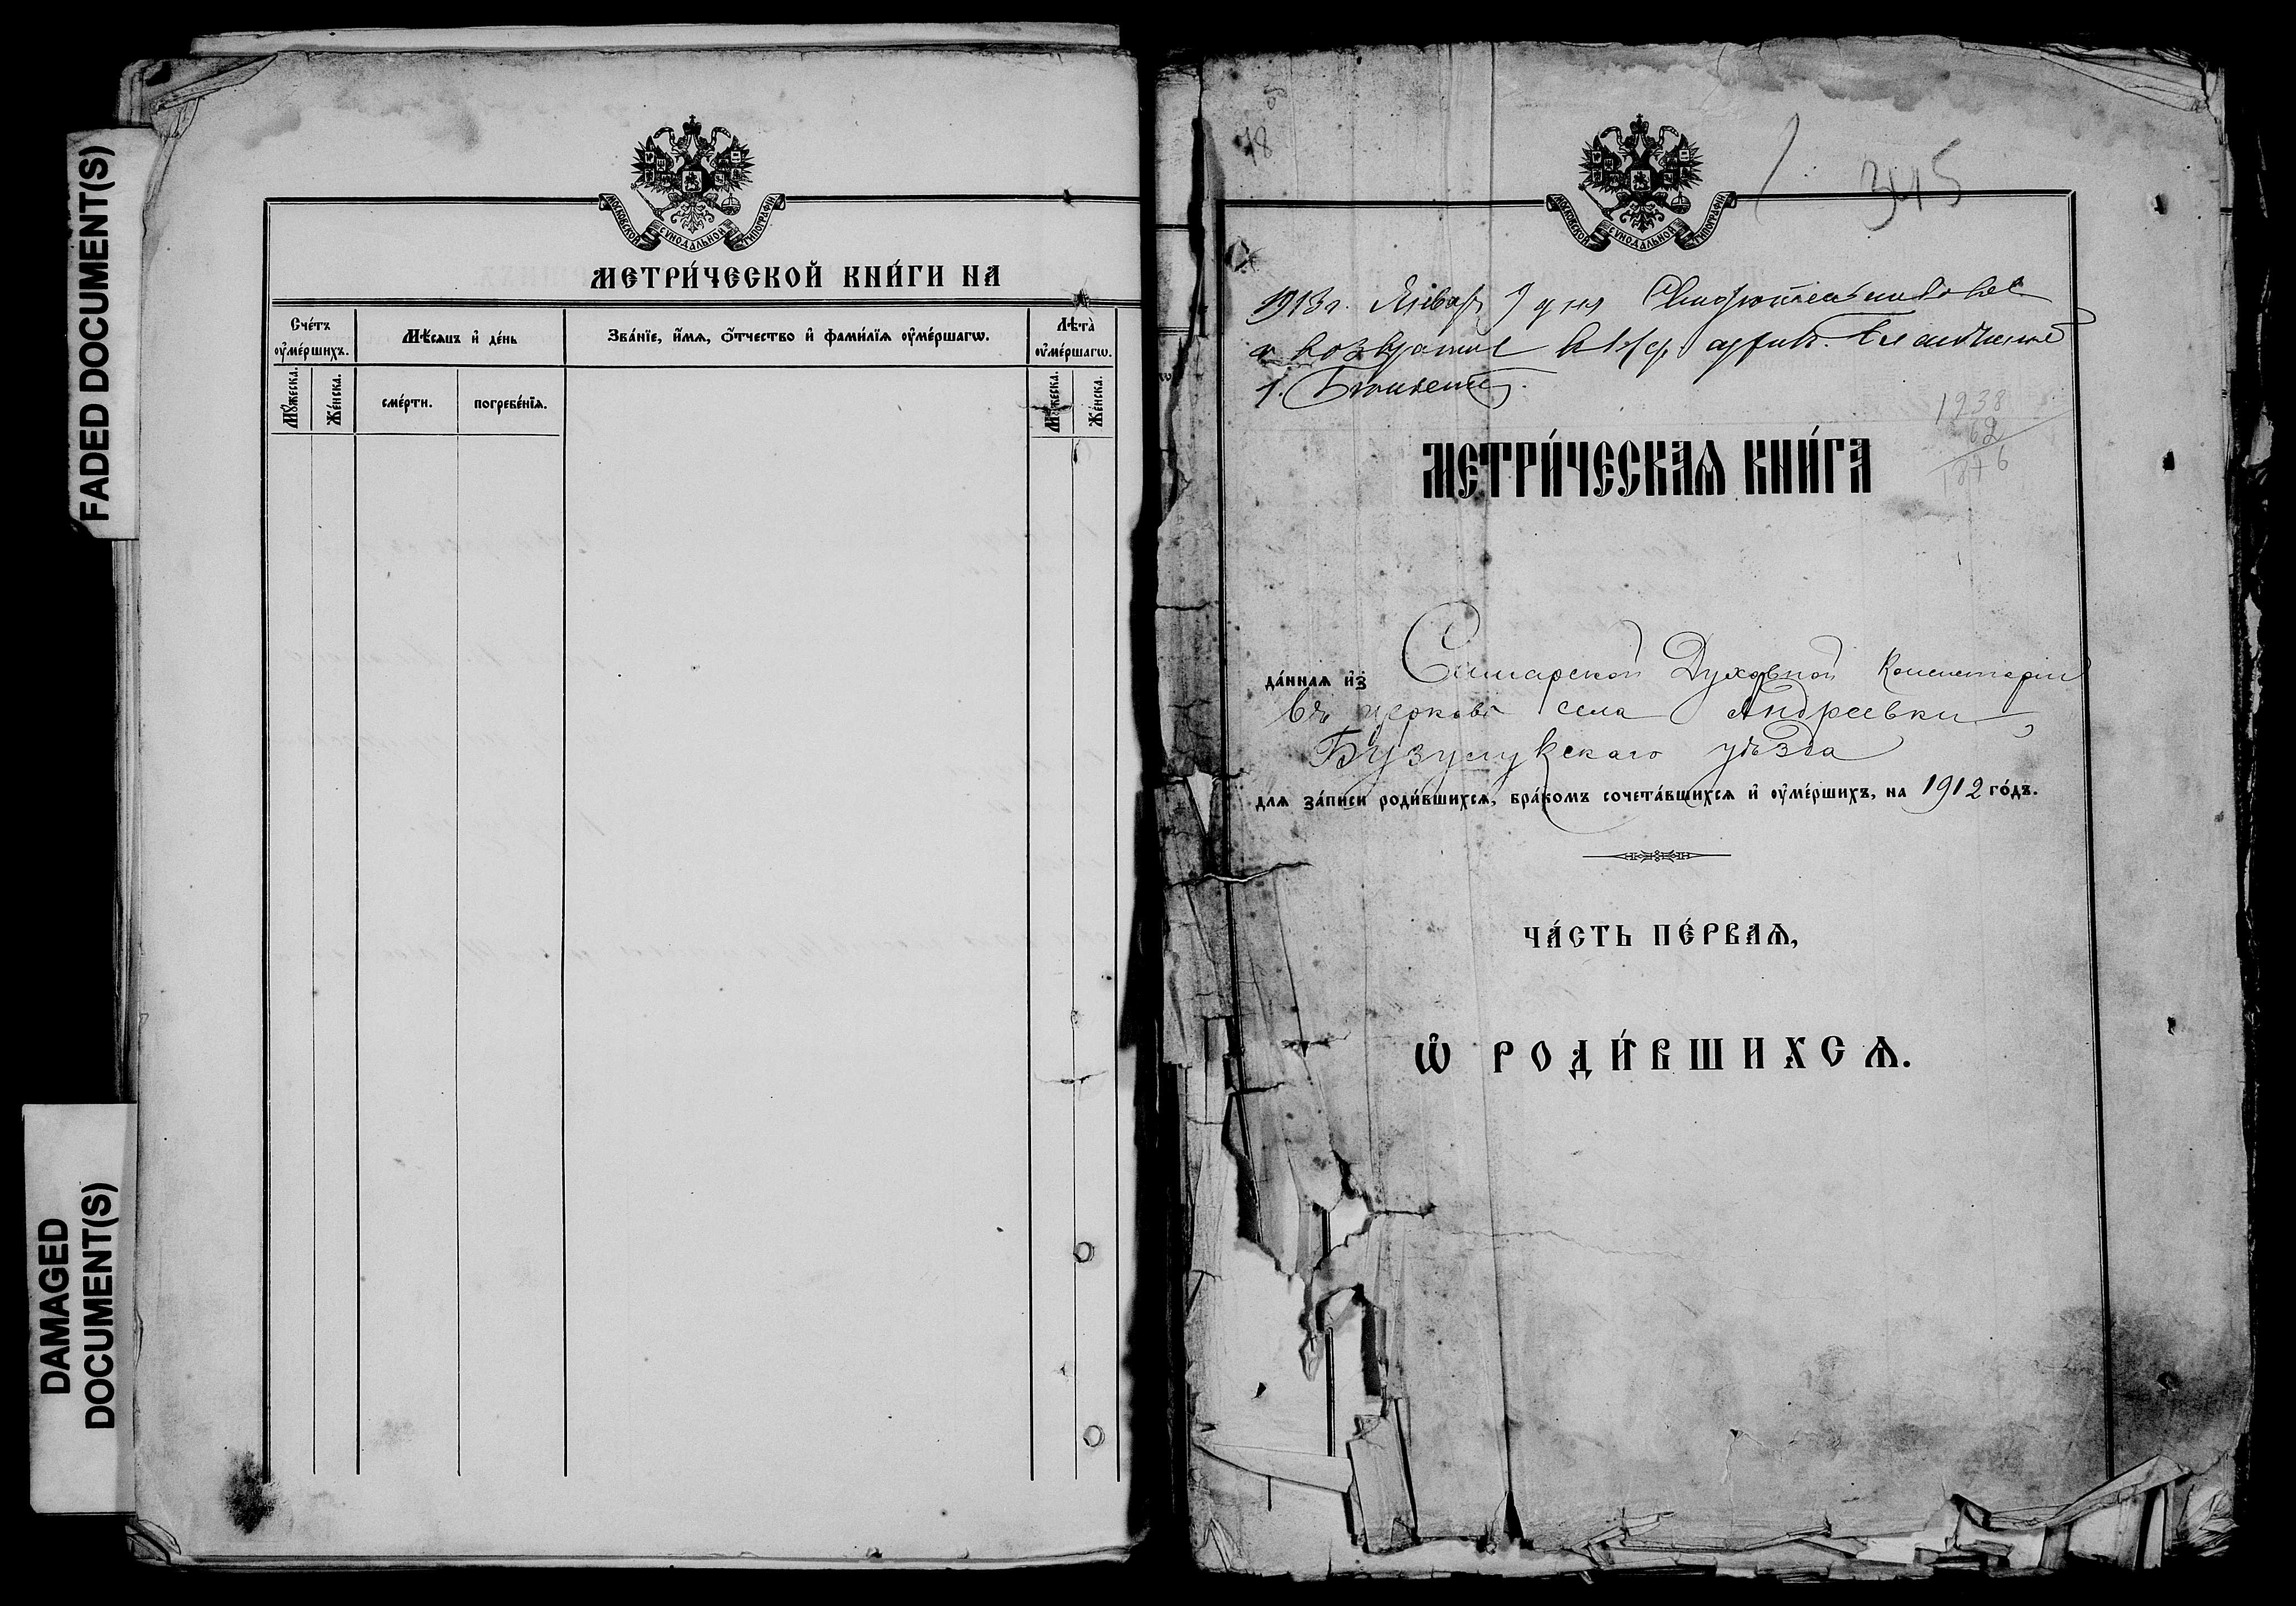 FADED DOCUMENT(S)
DAMAGED
DOCUMENT(S)
МОСКОВСКОЙ СѴНОДАЛЬНОЙ ТИПОГРАФІИ
МЕТРИ́ЧЕСКОЙ КНИ́ГИ НА
Сче́тъ ᲂу҆ме́ршихъ.
Мѣ́сяцъ и҆ де́нь
Зва́нїе, и҆́мѧ, ѻ҆́тчество и҆ фами́лїѧ ᲂу҆ме́ршагѡ.
Лѣ̀та ᲂу҆ме́ршагѡ.
Мꙋ́жеска.
Же́нска.
сме́рти.
погребе́нїѧ.
Мꙋ́жеска.
Же́нска.
78
345
МОСКОВСКОЙ СѴНОДАЛЬНОЙ ТИПОГРАФІИ
1913г. Январ 9 дня
1938
62
1876
МЕТРИ́ЧЕСКАѦ КНИ́ГА
да́ннаѧ и҆з̾ Самарской Духовной Консисторіи
въ церковь села Андреевки,
Бузулукскаго уѣзда
для за́писи роди́вшихсѧ, бра́комъ сочета́вшихсѧ и҆ ᲂу҆ме́ршихъ, на 1912 го́дъ.
ЧА́СТЬ ПЕ́РВАѦ,
Ѽ РОДИ́ВШИХСѦ.